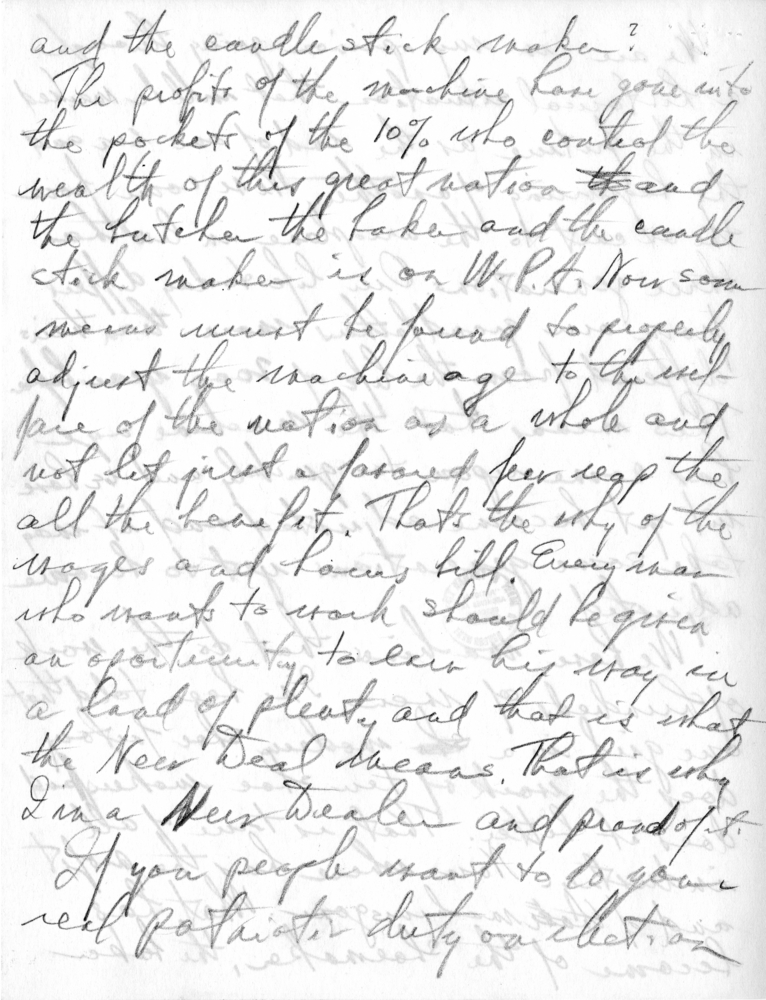 and the candle stick maker?
The profits of the machine have gone into
the pockets of the 10% who control the
wealth of this great nation and
the butcher the baker and the candle
stick maker is on W.P.A. Now some
means must be found to properly
adjust the machine age to the wel-
fare of the nation as a whole and
not let just a favored few reap the
all the benefit. Thats the why of the
wages and hours bill. Every man
who wants to work should be given
an oportunity to earn his way in
a land of plenty and that is what
the New Deal means. That is why
I'm a New Dealer and proud of it.
If you people want to do your
real patriotic duty on election